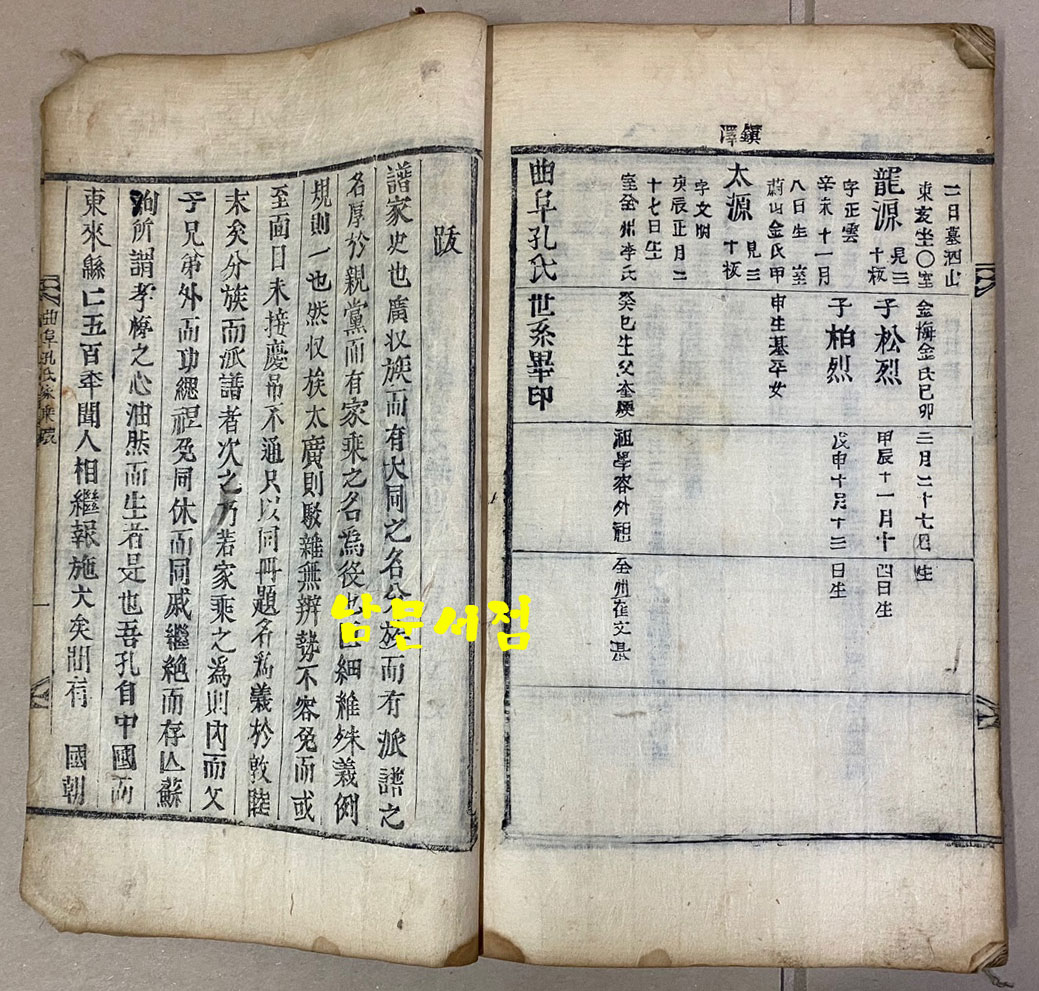 鎭澤
二日墓泗山
東亥坐〇室
龍源 見三十板
字正雲
辛未十一月
八日生 室
蔚山金氏甲
太源 見三十板
字文明
庚辰正月二
十七日生
室全州李氏
曲阜孔氏世系畢印
金海金氏己卯
子松烈
子柏烈
申生基平女
癸巳生父奎
三月二十七日生
甲辰十一月十四日生
戊申十月十三日生
祖學容外祖
全州崔文
跋
譜家史也廣収族而有大同之名分族而有派譜之
名厚於親黨而有家乘之名爲役也 細雖殊義例
規則一也然収族太廣則駁雜無辨勢不容免而或
至面目未接慶吊不通只以同冊題名爲義於敦睦
末矣分族而派譜者次之乃若家乘之爲則內而父
子兄弟外而功緦袒免同休而同戚繼絶而存亾蘇
洵所謂孝悌之心油然而生者是也吾孔自中國而
東來緜亡五百年聞人相繼報施大矣間有 國朝
曲阜孔氏家乘 一
남문서점